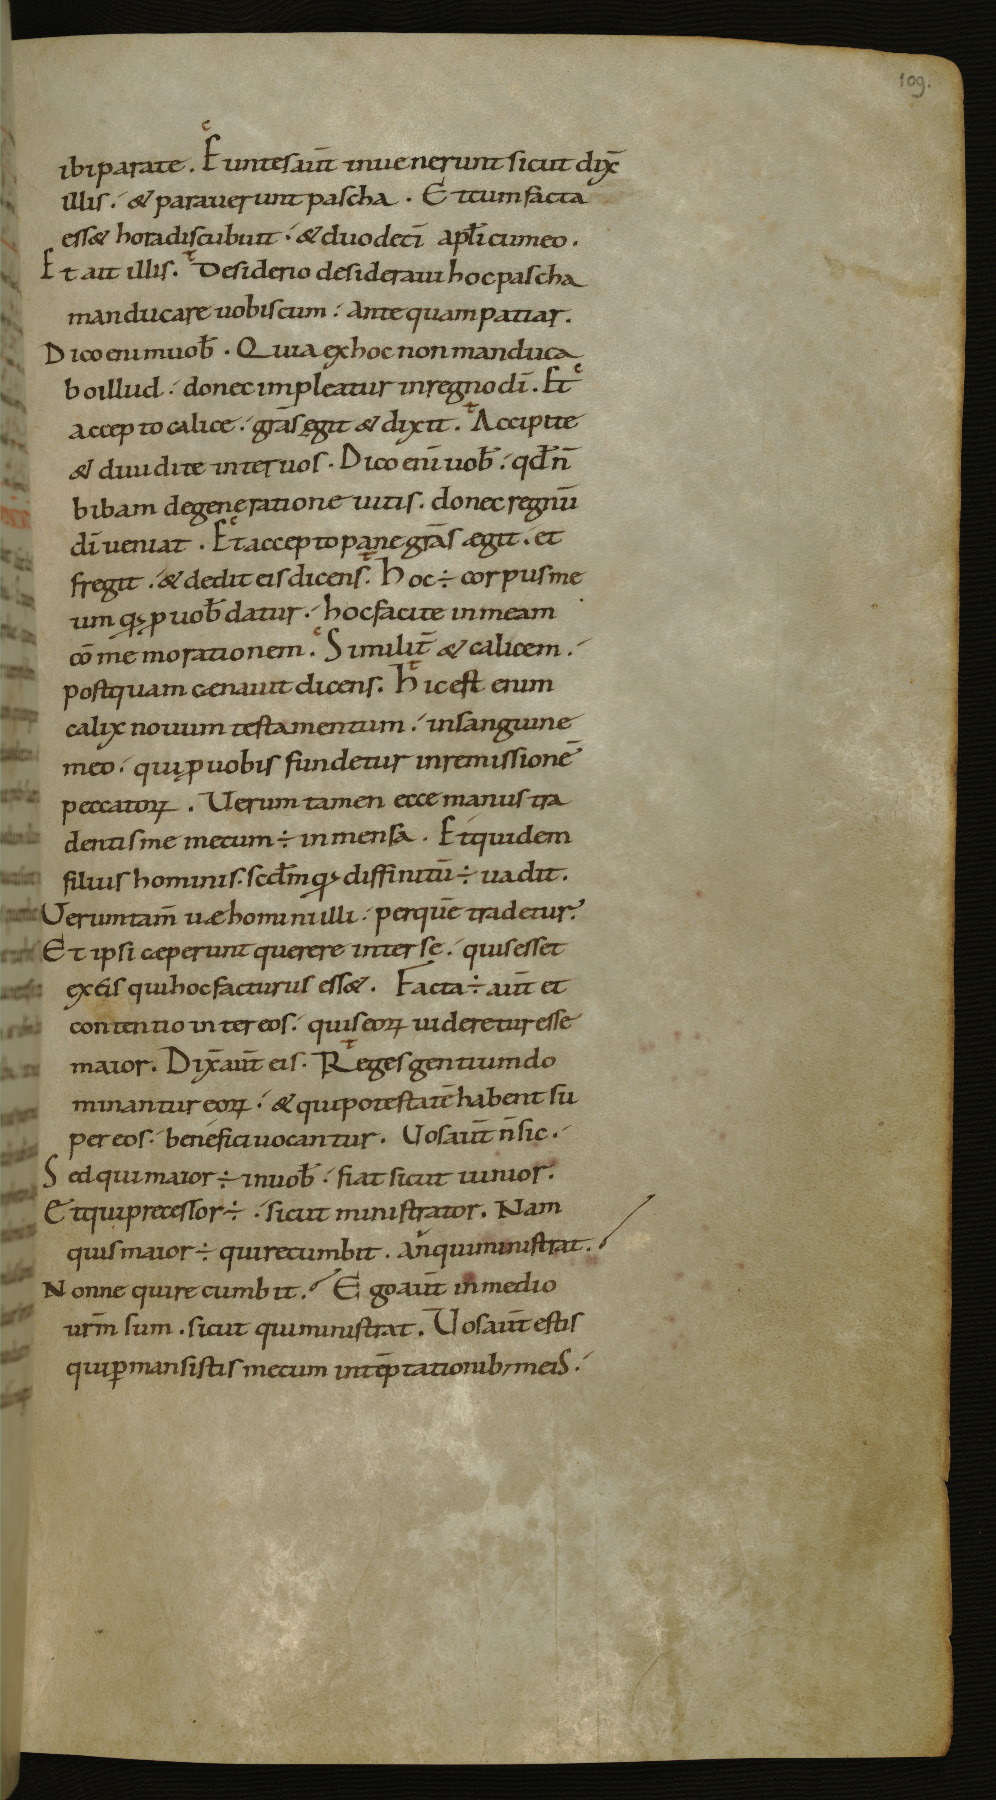 109.
ibi parate. Euntes aut̄ invenerunt sicut dix̄
illis. & paraverunt pascha. Et cum facta
ess& hora discubuit. & duodecī apłi cum eo.
Et ait illis. Desiderio desideravi hoc pascha
manducare vobiscum. antequam patiar.
Dico enim vob̄. Quia ex hoc non manduca
bo illud. donec impleatur in regno dī. Et
accepto calice. grās egit & dixit. Accipite
& dividite inter vos. Dico enī vob̄. qd̄ n̄
bibam de generatione vitis. donec regnū
dī veniat. Et accepto pane grās ægit. et
fregit. & dedit eis dicens. Hoc ÷ corpus me
um q; ꝑ vob̄ datur. hoc facite in meam
cōmemorationem. Similit̄ & calicem.
postquam cænavit dicens. Hic est enim
calix novum testamentum. in sanguine
meo. qui ꝑ vobis fundetur in remissionē
peccatoꝝ. Verum tamen ecce manus tra
dentis me mecum ÷ in mensa. Et quidem
filius hominis. scdm̄ q; diffinitū ÷ vadit.
Veruntam̄ væ homini illi. per quē tradetur.
Et ipsi cæperunt querere inter se. quis esset
ex eis qui hoc facturus ess&. Facta ÷ aut̄ et
contentio inter eos. quis eoꝝ videretur esse
maior. Dix̄ aut̄ eis. Reges gentium do
minantur eoꝝ. & qui potestatē habent su
per eos. benefici vocantur. Vos aut̄ n̄ sic.
Sed qui maior ÷ in vob̄. fiat sicut iunior.
Et qui precessor ÷. sicut ministrator. Nam
quis maior ÷ qui recumbit. an qui ministrat.
Nonne qui recumbit. Ego aut̄ in medio
vrm̄ sum. sicut qui ministrat. Vos aut̄ estis
qui ꝑmansistis mecum in tēptationib; meis.